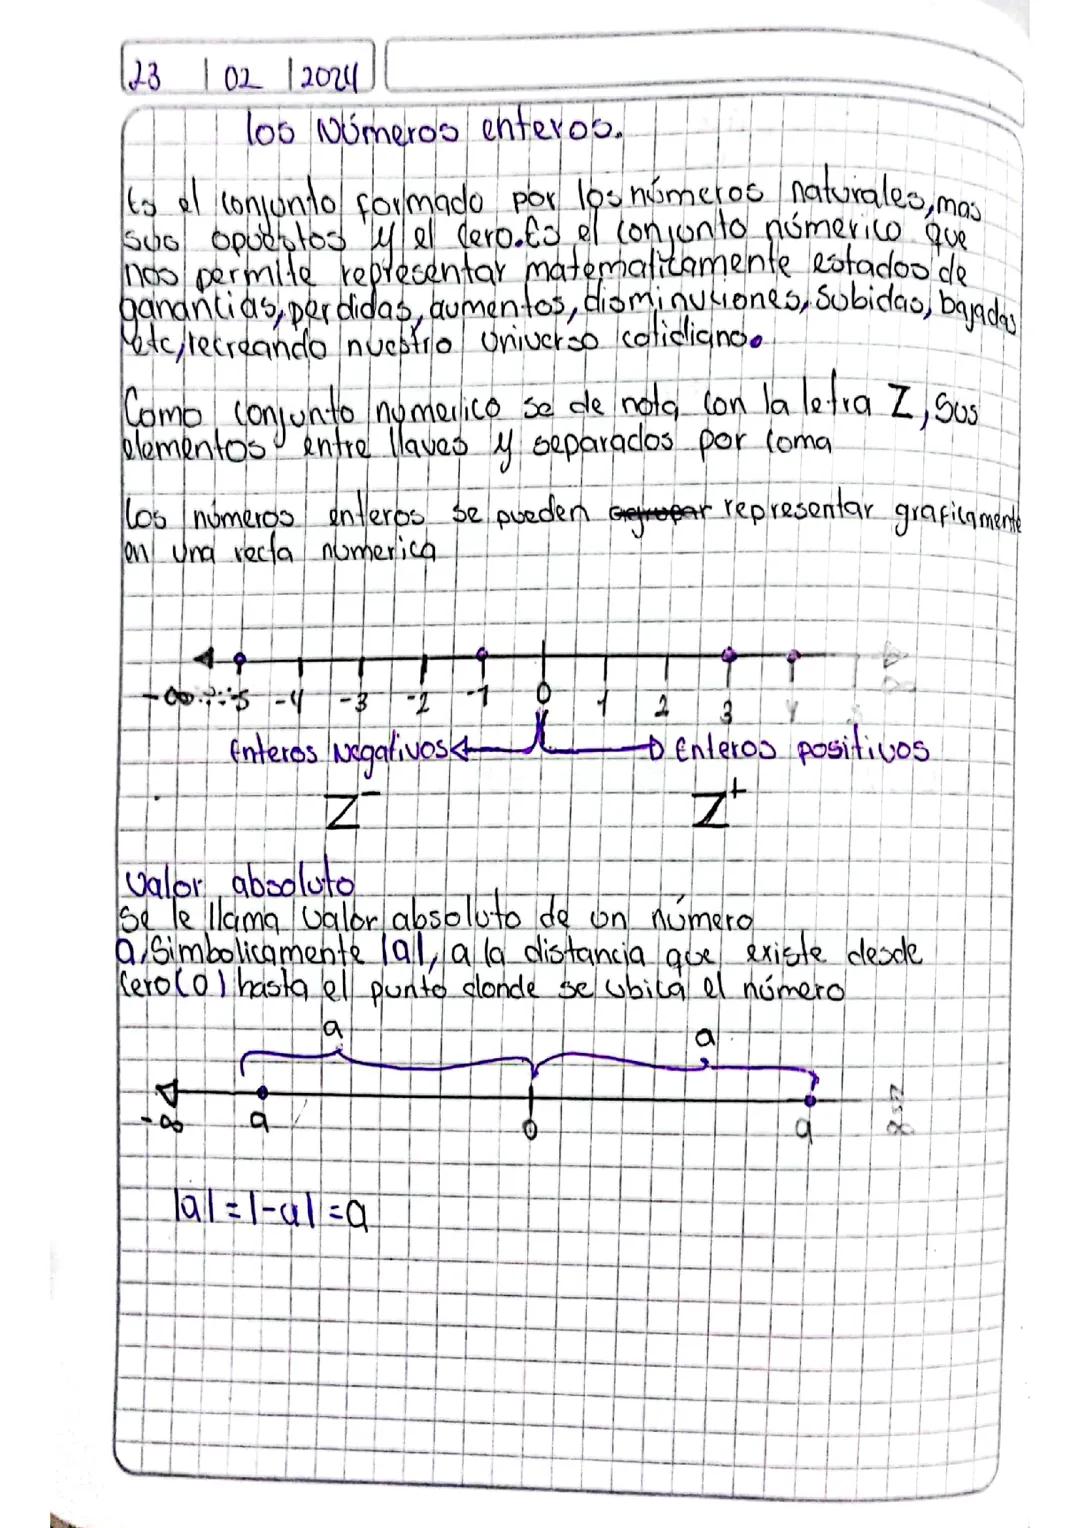 23 | 02 | 2024
los Números enteros.
Es el conjunto formado por los números naturales, mas
sus opuestos y el cero. Es el conjunto númerico que
nos permite representar matematicamente estados de
ganancias, perdidas, aumentos, disminuciones, subidas, bajadas
etc, recreando nuestro universo cotidiano.
Como conjunto numerico se de nota con la letra Z, sus
elementos entre llaves y separados por coma
los números enteros se pueden agrupar representar graficamente
en una recta numerica
-∞ -5 -4 -3 -2 -1 0 1 2 3 4 5 ∞
Enteros Negativos Enteros positivos
Z⁻ Z⁺
Valor absoluto
Se le llama valor absoluto de un número
a, Simbolicamente |a|, a la distancia que existe desde
cero (0) hasta el punto donde se ubica el número
a a
-∞ a 0 a
|a| = |-a| = a